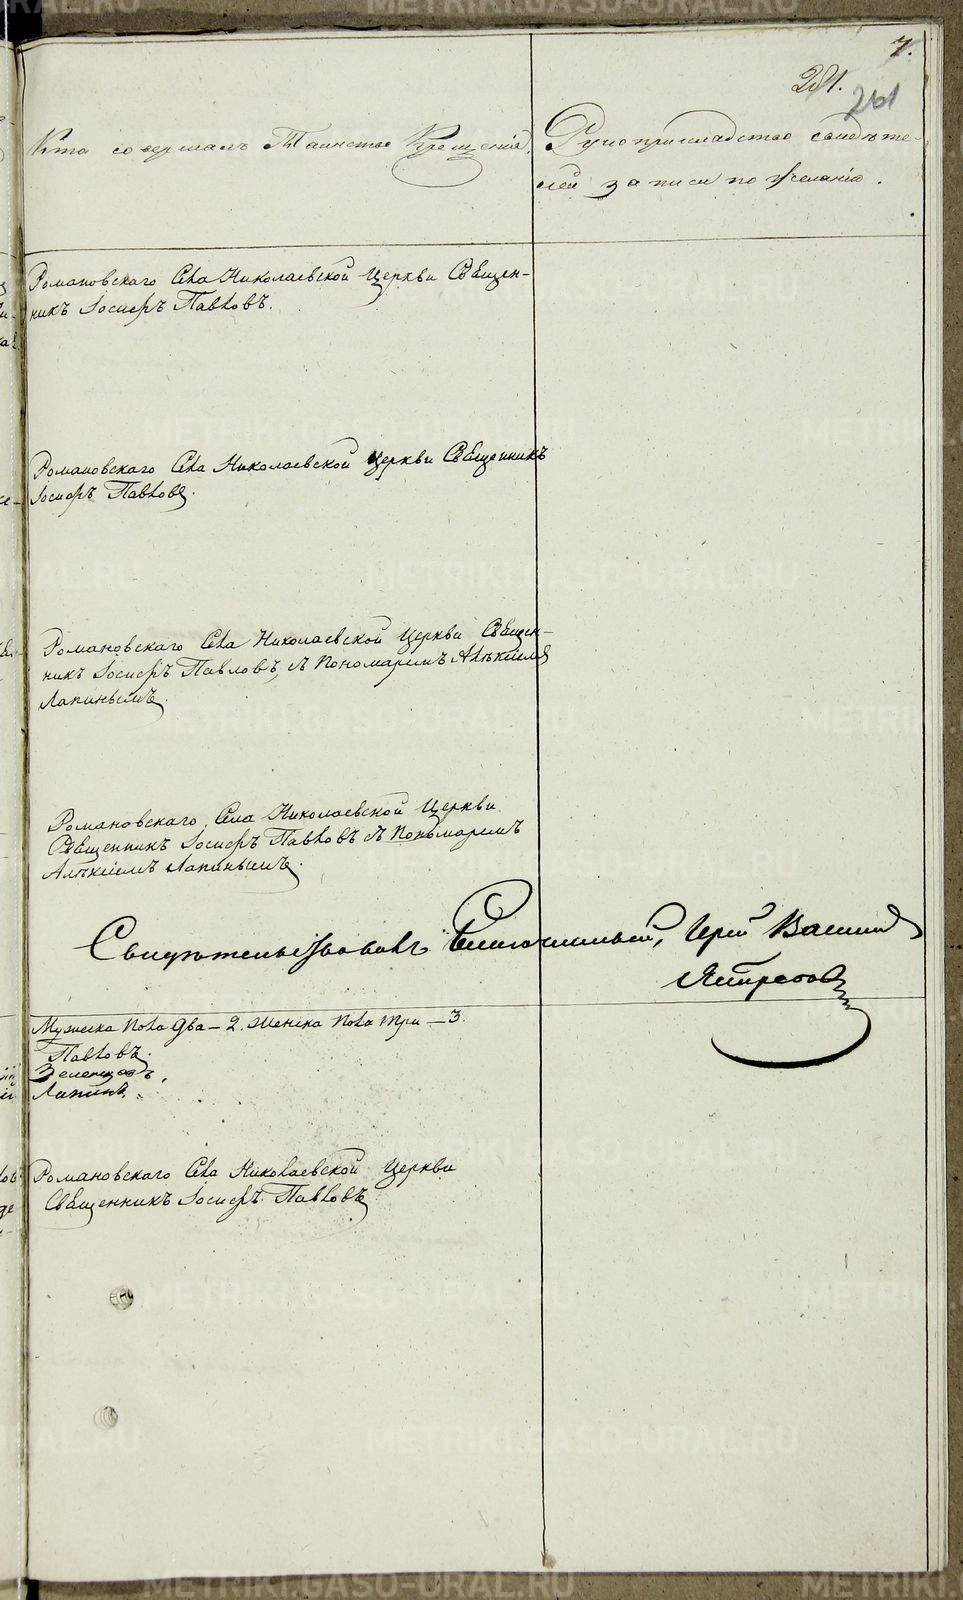 7.
281.
261
Кто совершалъ Таинство Крещенія.
Рукоприкладство свидѣте-
лей записи по желанію.
Романовскаго Села Николаевской Церкви Священ-
никъ Іосифъ Павловъ.
Романовскаго Села Николаевской Церкви Священникъ
Іосифъ Павловъ.
Романовскаго Села Николаевской Церкви Священ-
никъ Іосифъ Павловъ, съ Пономаремъ Алѣксіемъ
Лапинымъ.
Романовскаго Села Николаевской Церкви
Священникъ Іосифъ Павловъ съ Пономаремъ
Алѣксіемъ Лапинымъ.
Свидѣтельствовалъ Благочинный, Іерей Василій
Ястребовъ
Мужеска пола два – 2. Женска пола три – 3.
Павловъ.
Зеленцовъ,
Лапинъ.
Романовскаго Села Николаевской Церкви
Священникъ Іосифъ Павловъ
METRIKI.GASO-URAL.RU